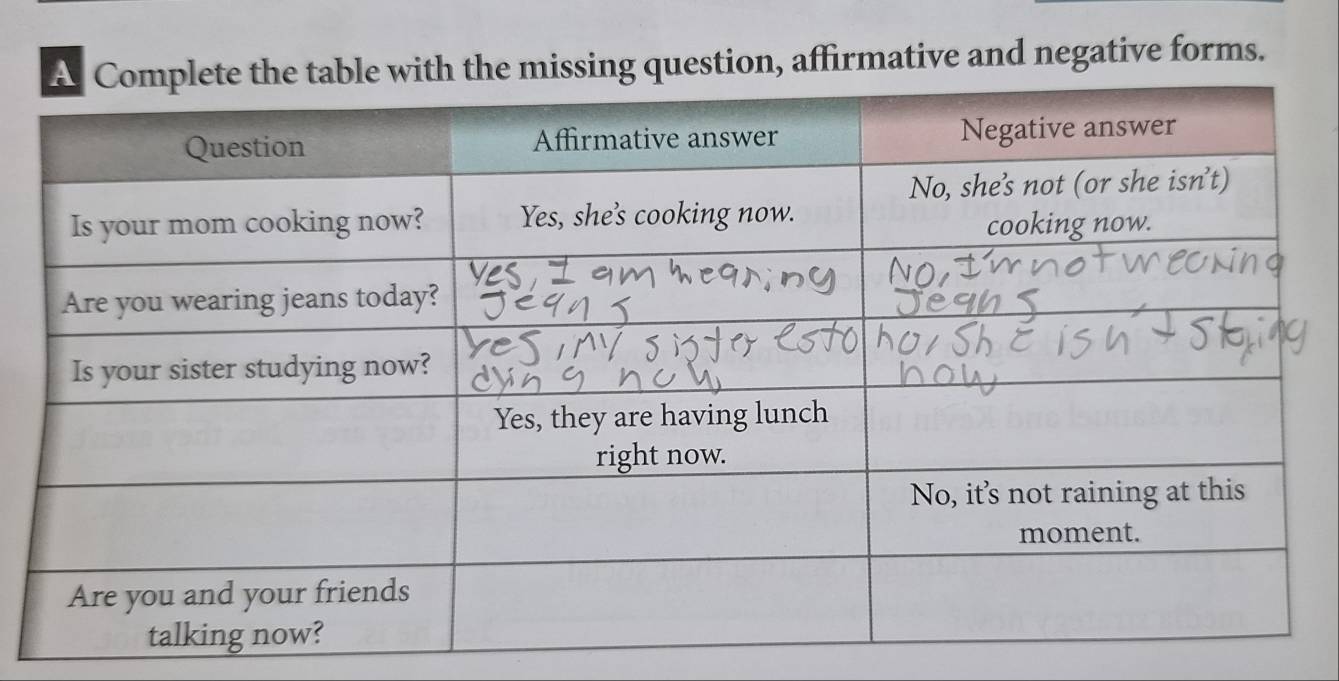 A Complete the table with the missing question, affirmative and negative forms.
Question
Affirmative answer
Negative answer
Is your mom cooking now?
Yes, she's cooking now.
No, she's not (or she isn't)
cooking now.
Are you wearing jeans today?
Yes, I am wearing
Jeans
No, I'm not wearing
Jeans
Is your sister studying now?
Yes, my sister esto
dying now
no, she isn't
now
Yes, they are having lunch
right now.
No, it's not raining at this
moment.
Are you and your friends
talking now?